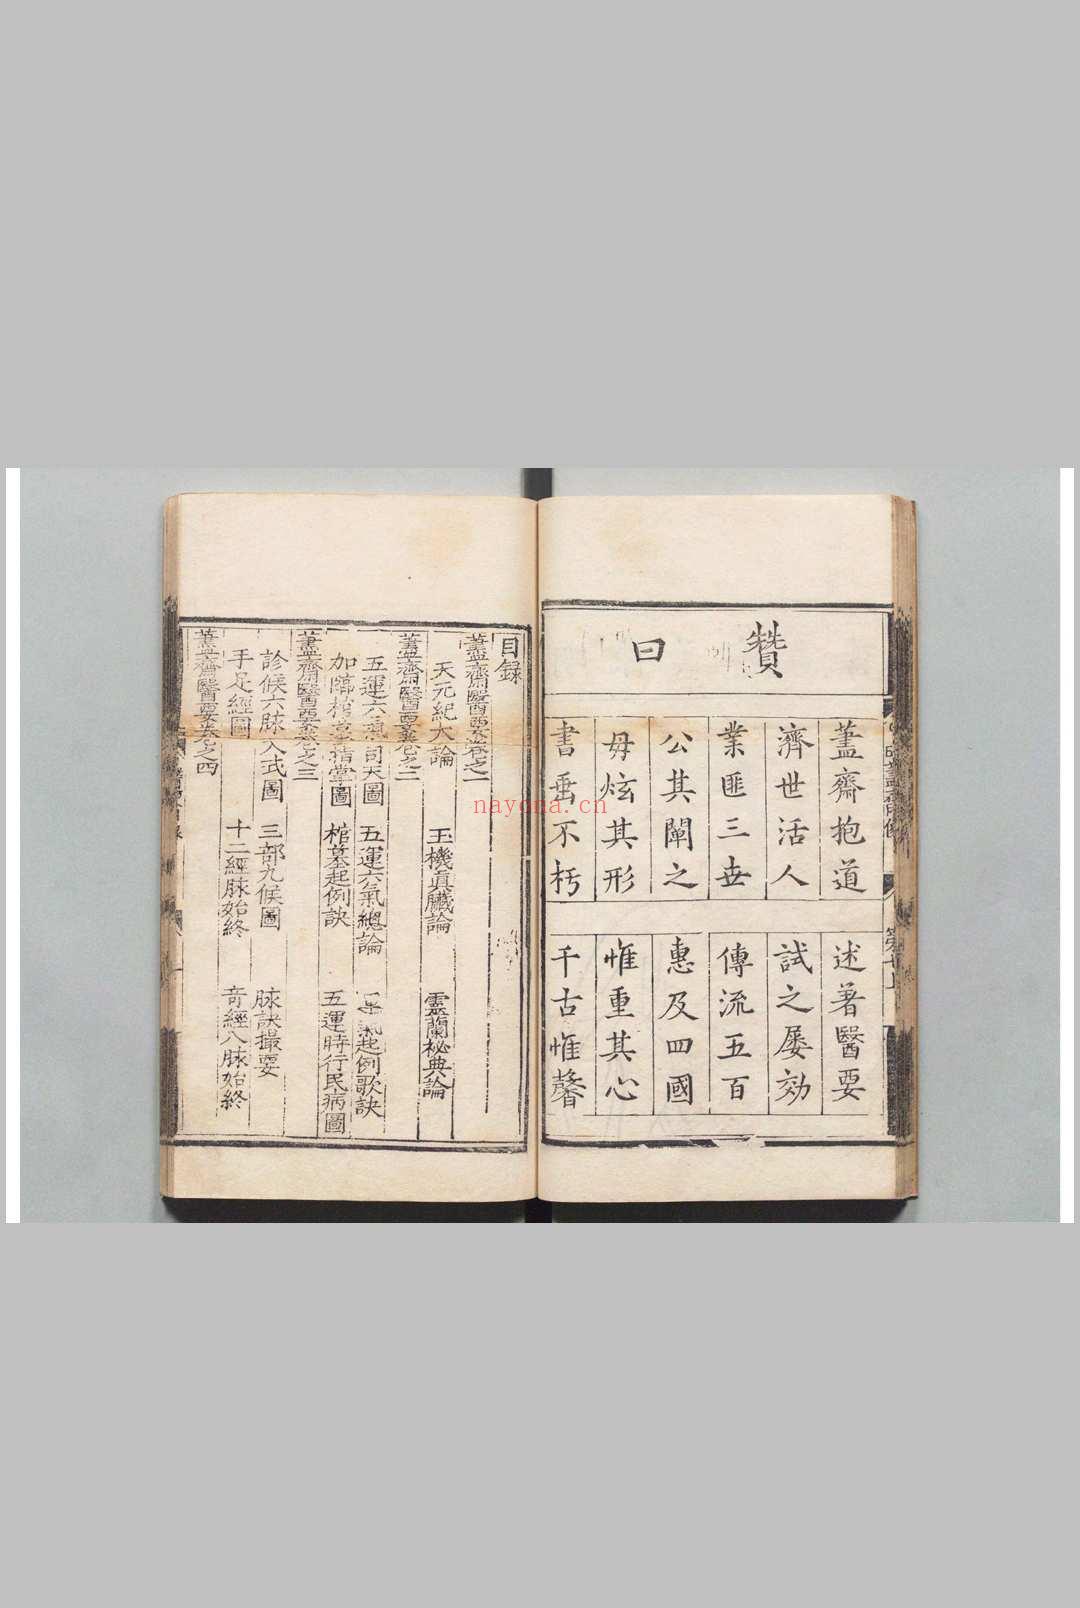 贊曰
藎齋抱道
述著醫要
濟世活人
試之屡効
業匪三世
傳流五百
公其闡之
惠及四國
毋炫其形
惟重其心
書垂不朽
千古惟馨
目録
藎齋醫要卷之一
天元紀大論 玉機眞臟論 靈蘭秘典論
藎齋醫要卷之二
五運六氣司天圖 五運六氣總論 起例歌訣
加臨棺墓指掌圖 棺墓起例訣 五運時行民病圖
藎齋醫要卷之三
診候六脉入式圖 三部九候圖 脉訣撮要
手足經圖 十二經脉始終 奇經八脉始終
藎齋醫要卷之四
nayona.cn